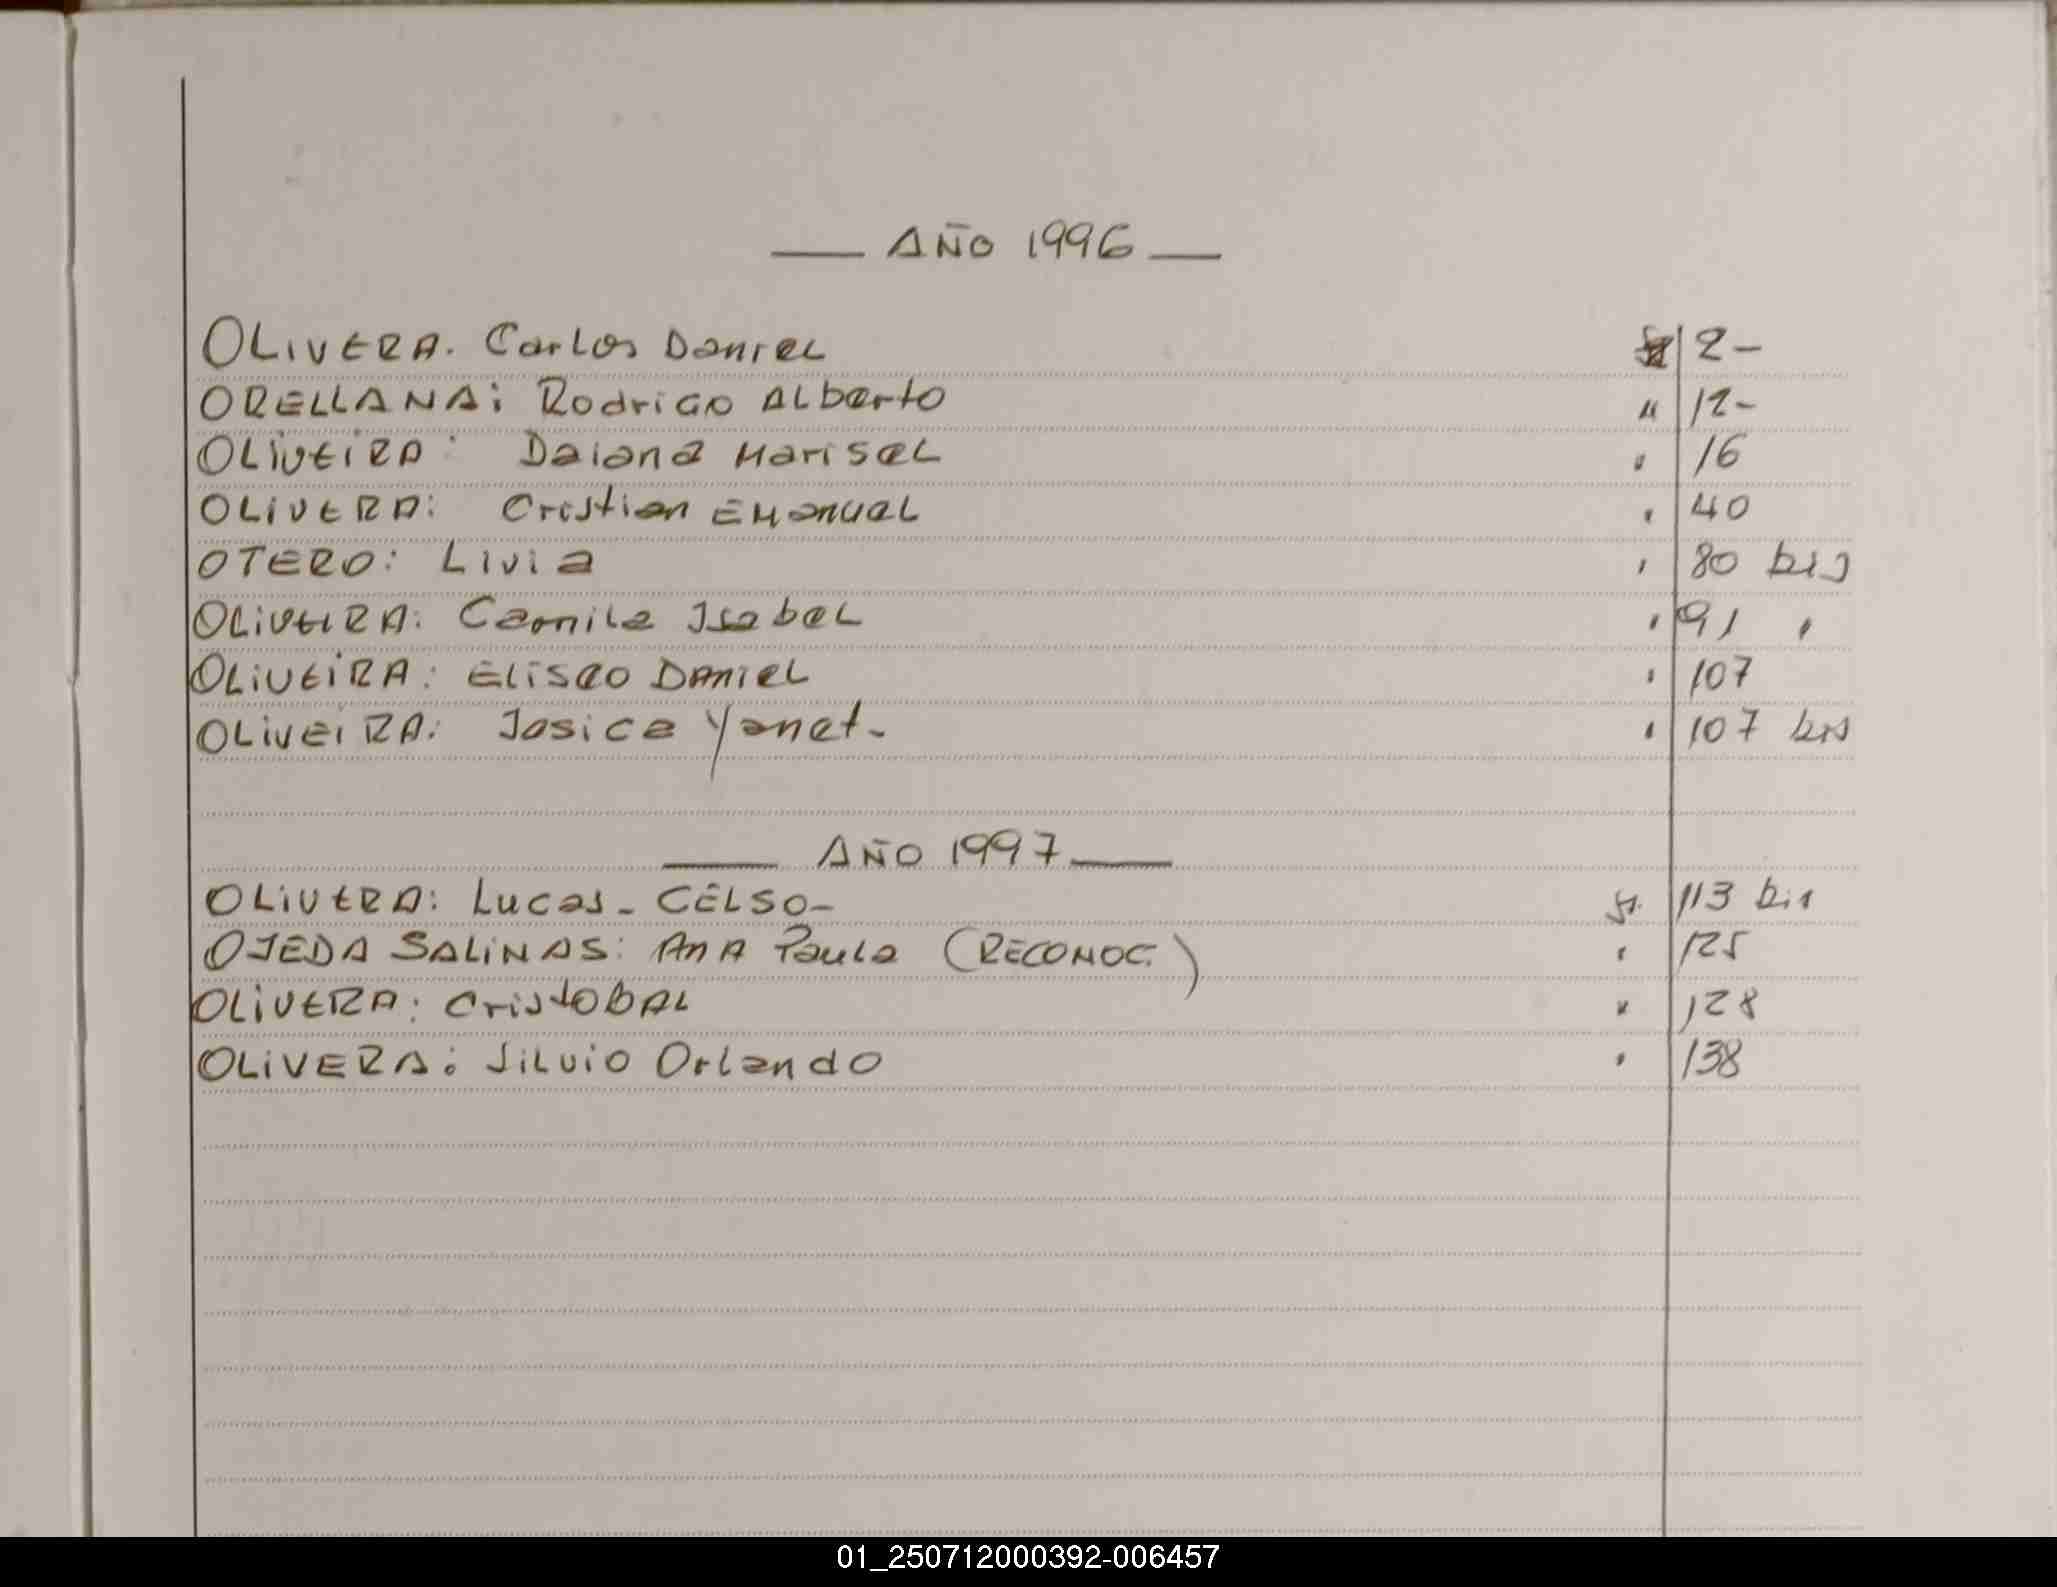 — AÑO 1996 —
OLIVERA. Carlos Daniel 2-
ORELLANA: Rodrigo Alberto " 12-
OLIVEIRA: Daiana Marisel " 16
OLIVERA: Cristian EManuel " 40
OTERO: Livia " 80 bis
OLIVEIRA: Camila Isabel " 91 "
OLIVEIRA: Eliseo DANIEL " 107
OLIVEIRA: Jesica Yanet- " 107 bis
— AÑO 1997 —
OLIVERA: Lucas- CELSO- fs. 113 bis
OJEDA SALINAS: ANA Paula (RECONOC.) " 125
OLIVERA: CristOBAL " 128
OLIVERA: Silvio Orlando " 138
01_250712000392-006457